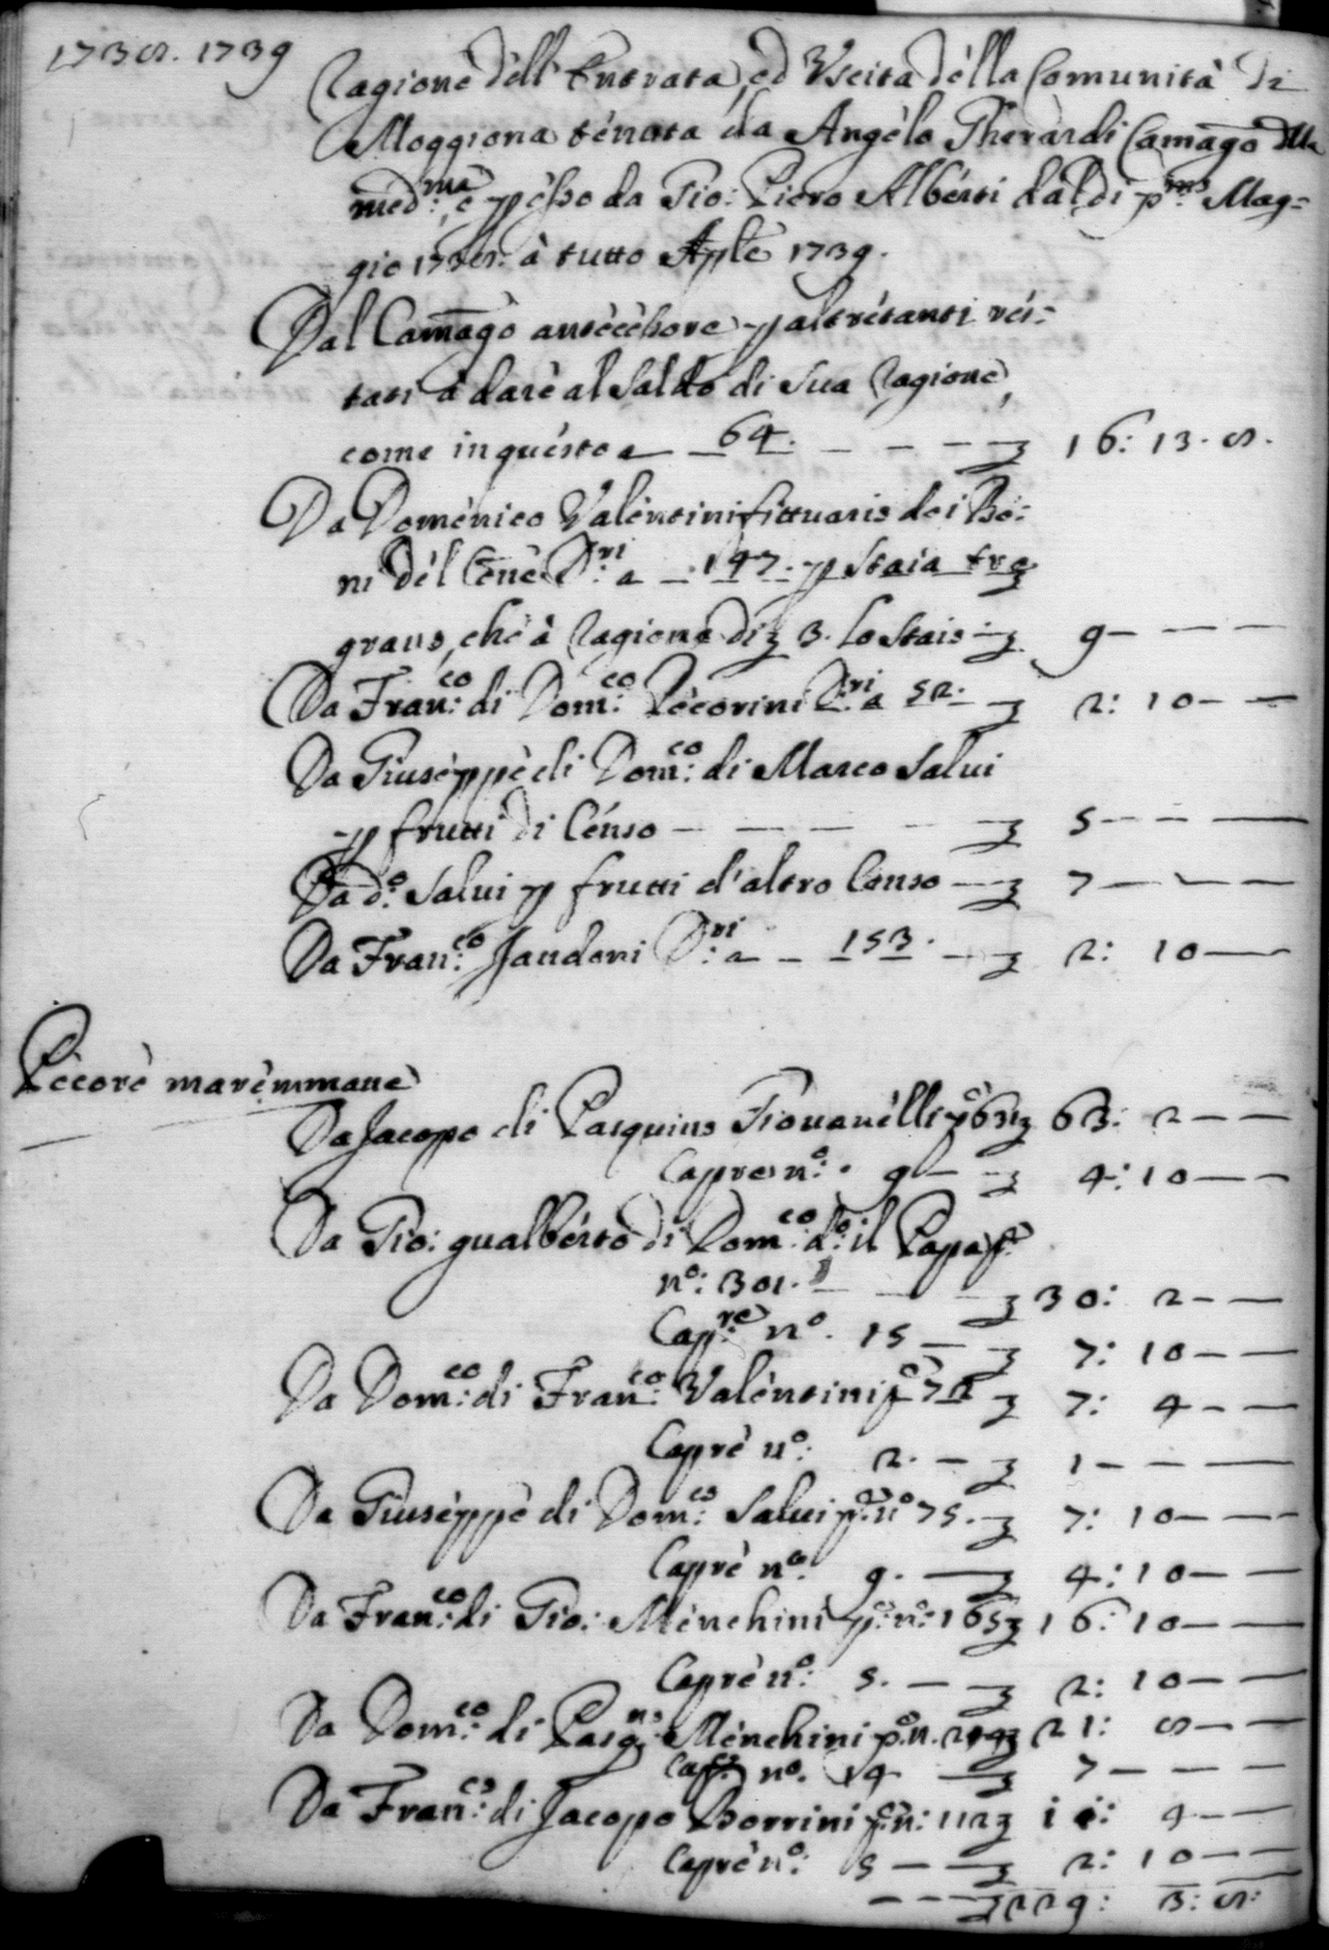 1738. 1739
Ragione dell' Entrata, ed Uscita della Comunità di
Moggiona tenuta da Angelo Gherardi Camāgo dlla
med:ma, e p esso da Gio: Piero Alberti dal dì p:mo Mag=
gio 1738: à tutto Aple 1739.
Dal Camāgo antecessore p altretanti res=
tati à dare al Saldo di Sua Ragione,
come in questo a — 64. — — — £ 16: 13. 8.
Da Domenico Valentini fittuario dei Be=
ni del Cene D:ri a — 147. p Staia tre
grano, che à ragione di £ 3. lo Staio — £ 9 — — —
Da Fran:co di Dom:co Pecorini D:ri a 52. — £ 2: 10 — —
Da Giuseppe di Dom:co di Marco Salui
p frutti di Censo — — — — £ 5 — — —
Da d:o Salui p frutti d'altro Censo — £ 7 — — —
Da Fran:co Jandoni D:ri a — 153. — £ 2: 10 —
Pecore maremmane
Da Jacopo di Pasquino Giouanelli pe 631 £ 63: 2 — —
Capre n:o 9 — £ 4: 10 — —
Da Gio: gualberto di Dom:co d:o il Papa pe
n:o: 301. — — £ 30: 2 — —
Cap:re n:o 15 — £ 7: 10 — —
Da Dom:co di Fran:co Valentini pe 72 £ 7: 4 — —
Capre n:o: 2. — £ 1 — — —
Da Giuseppe di Dom:co Salui pe n:o 75. £ 7: 10 — —
Capre n:o 9. — £ 4: 10 — —
Da Fran:co di Gio: Menchini pe n:o 165 £ 16: 10 — —
Capre n:o: 5. — £ 2: 10 — —
Da Dom:co di Pasq:no Menchini pe n. 214 £ 21: 8 — —
Cap:e n:o. 14 — £ 7 — — —
Da Fran:co di Jacopo Borrini pe n: 112 £ 11: 4 — —
Capre n:o: 5 — £ 2: 10 — —
— — — £ 229: 3: 8: